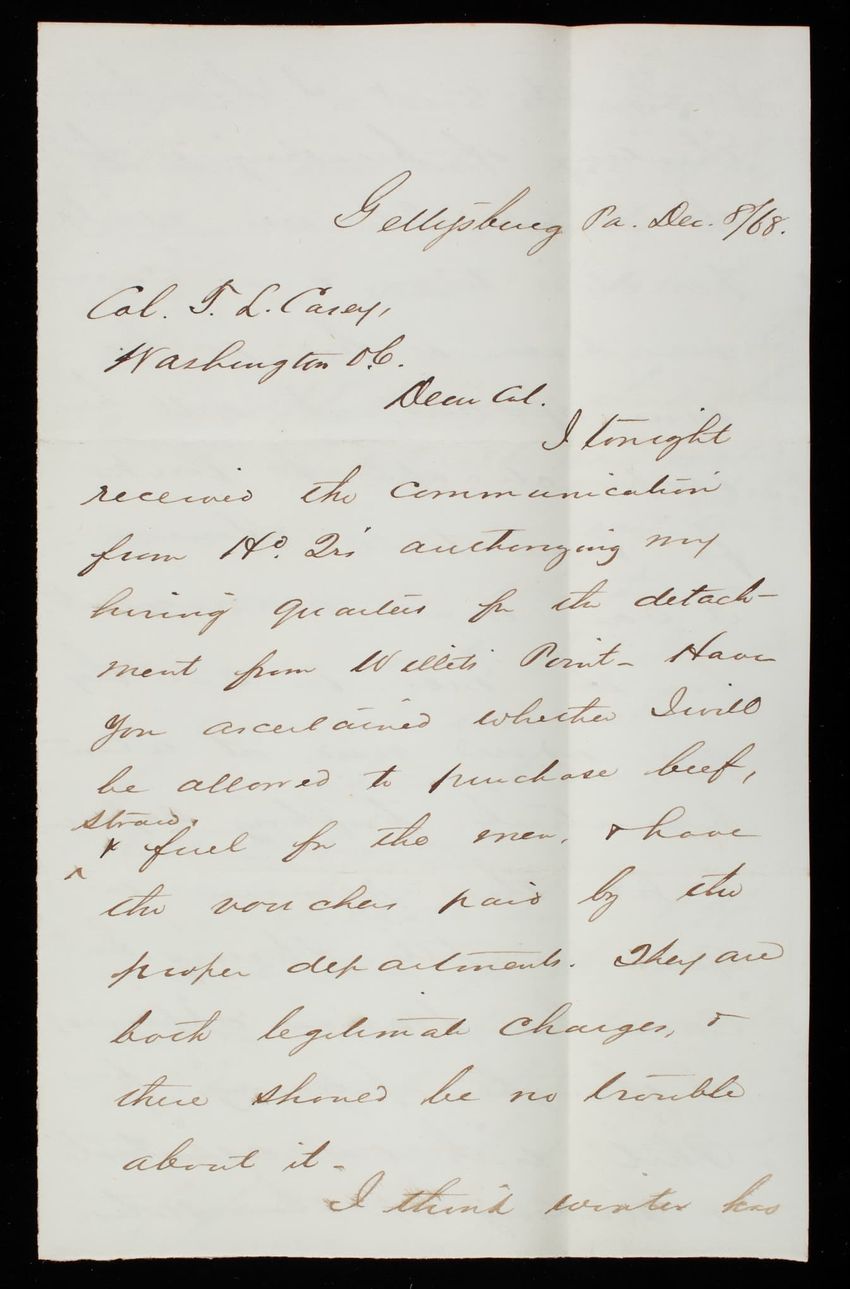 Gettysburg Pa. Dec. 8/68.
Col. T. L. Casey,
Washington D.C.
Dear Col.
I tonight
received the communication
from Hd. Qrs authorizing my
hiring quarters for the detach-
ment from Willets Point - Have
you ascertained whether I will
be allowed to purchase beef,
straw,
& fuel for the men, & have
the vouchers paid by the
proper departments. They are
both legitimate charges, &
there should be no trouble
about it -
I think winter has